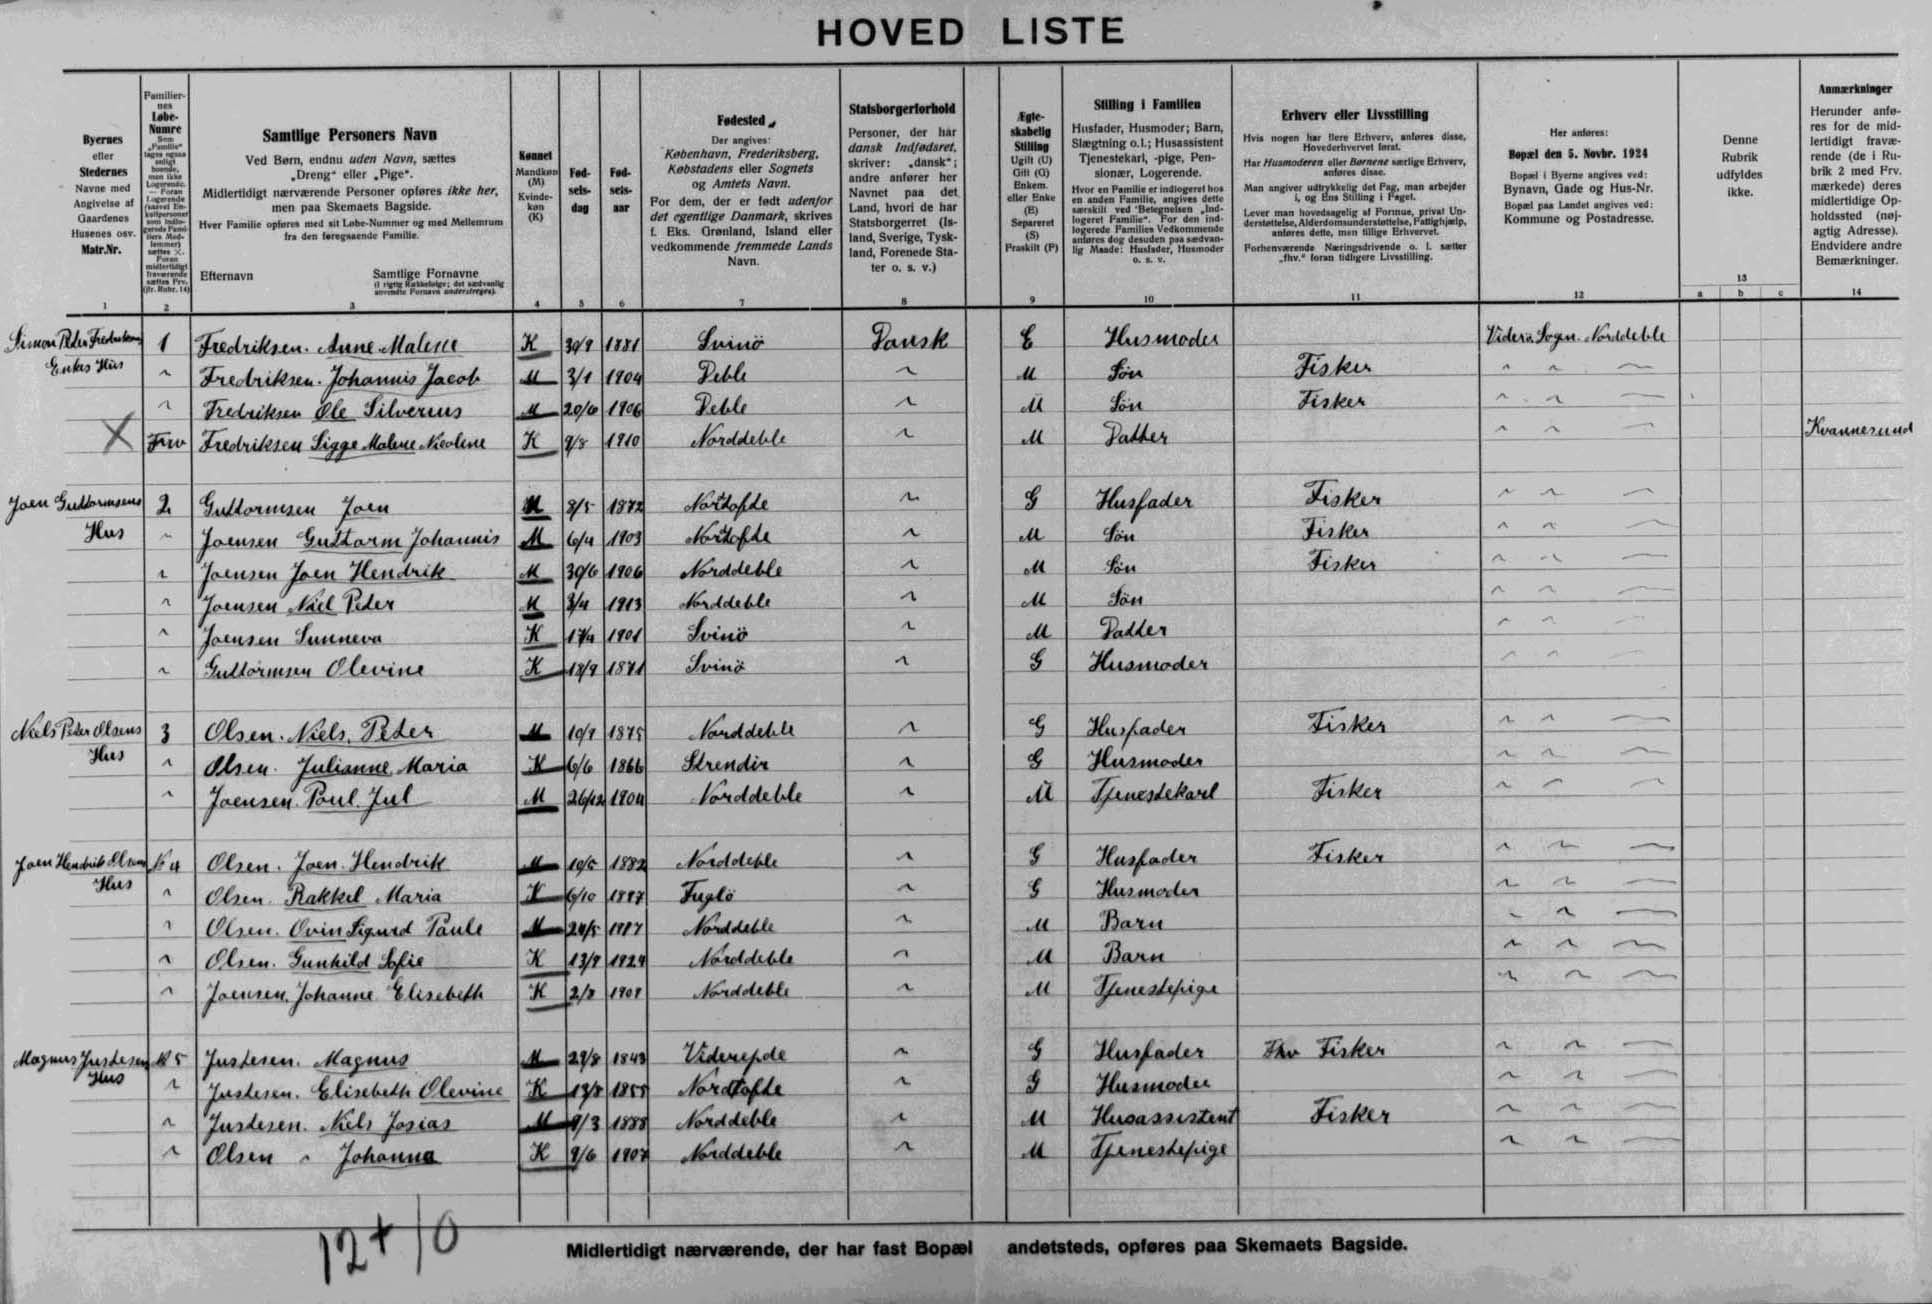 HOVED LISTE
Byernes
eller
Stedernes
Navne med
Angivelse af
Gaardenes
Husenes osv.
Matr.Nr.
1
Familier-
nes
Løbe-
Numre
2
Samtlige Personers Navn
Ved Børn, endnu uden Navn, sættes
„Dreng“ eller „Pige“.
Midlertidigt nærværende Personer opføres ikke her,
men paa Skemaets Bagside.
Hver Familie opføres med sit Løbe-Nummer og med Mellemrum
fra den foregaaende Familie.
Efternavn
Samtlige Fornavne
(i rigtig Rækkefølge; det sædvanlig
anvendte Fornavn understreges).
3
Kønnet
Mandkøn
(M)
Kvinde-
køn
(K)
4
Fød-
sels-
dag
5
Fød-
sels-
aar
6
Fødested
Der angives:
København, Frederiksberg,
Købstadens eller Sognets
og Amtets Navn.
For dem, der er født udenfor
det egentlige Danmark, skrives
f. Eks. Grønland, Island eller
vedkommende fremmede Lands
Navn.
7
Statsborgerforhold
Personer, der har
dansk Indfødsret,
skriver: „dansk“;
andre anfører her
Navnet paa det
Land, hvori de har
Statsborgerret (Is-
land, Sverige, Tysk-
land, Forenede Sta-
ter o. s. v.)
8
Ægte-
skabelig
Stilling
Ugift (U)
Gift (G)
Enkem.
eller Enke
(E)
Separeret
(S)
Fraskilt (F)
9
Stilling i Familien
Husfader, Husmoder; Barn,
Slægtning o.l.; Husassistent
Tjenestekarl, -pige, Pen-
sionær, Logerende.
Hvor en Familie er indlogeret hos
en anden Familie, angives dette
særskilt ved Betegnelsen „Ind-
logeret Familie“. For den ind-
logerede Families Vedkommende
anføres dog desuden paa sædvan-
lig Maade: Husfader, Husmoder
o. s. v.
10
Erhverv eller Livsstilling
Hvis nogen har flere Erhverv, anføres disse,
Hovederhvervet først.
Har Husmoderen eller Børnene særlige Erhverv,
anføres disse.
Man angiver udtrykkelig det Fag, man arbejder
i, og Ens Stilling i Faget.
Lever man hovedsagelig af Formue, privat Un-
derstøttelse, Alderdomsunderstøttelse, Fattighjælp,
anføres dette, men tillige Erhvervet.
Forhenværende Næringsdrivende o. l. sætter
„fhv.“ foran tidligere Livsstilling.
11
Her anføres:
Bopæl den 5. Novbr. 1924
Bopæl i Byerne angives ved:
Bynavn, Gade og Hus-Nr.
Bopæl paa Landet angives ved:
Kommune og Postadresse.
12
Denne
Rubrik
udfyldes
ikke.
13
a b c
Anmærkninger
Herunder anfø-
res for de mid-
lertidigt fravæ-
rende (de i Ru-
brik 2 med Frv.
mærkede) deres
midlertidige Op-
holdssted (nøj-
agtig Adresse).
Endvidere andre
Bemærkninger.
14
Simon Peder Fredriksens 1 Fredriksen. Anne Malene K 30/9 1881 Svinö Dansk E Husmoder Viderö Sogn. Norddeble
Enkes Hus " Fredriksen. Johannis Jacob M 3/1 1904 Deble " M Søn Fisker " " "
" Fredriksen Ole Silverius M 20/6 1906 Deble " M Søn Fisker " " "
X Frv Fredriksen Sigge Malene Nicolene K 9/8 1910 Norddeble " M Datter " " " Kvannesund
Joen Guttormsens 2 Guttormsen Joen M 8/5 1872 Nordtofde " G Husfader Fisker " " "
Hus " Joensen Guttorm Johannis M 6/4 1903 Nordtofde " M Søn Fisker " " "
" Joensen Joen Hendrik M 30/6 1906 Norddeble " M Søn Fisker " " "
" Joensen Niel Peter M 3/4 1913 Norddeble " M Søn " " "
" Joensen Sunneva K 17/4 1901 Svinö " M Datter " " "
" Guttormsen Olevine K 18/9 1871 Svinö " G Husmoder " " "
Niels Peter Olsens 3 Olsen. Niels. Peter M 10/9 1875 Norddeble " G Husfader Fisker " " "
Hus " Olsen. Julianne Maria K 6/6 1866 Strendir " G Husmoder " " "
" Joensen. Poul. Jul M 26/12 1904 Norddeble " M Tjenestekarl Fisker " " "
Joen Hendrik Olsens № 4 Olsen. Joen. Hendrik M 10/5 1882 Norddeble " G Husfader Fisker " " "
Hus " Olsen. Rakkel Maria K 6/10 1887 Fuglö " G Husmoder " " "
" Olsen. Ovin Sigurd Paule M 24/5 1917 Norddeble " M Barn " " "
" Olsen. Gunhild Sofie K 13/9 1924 Norddeble " M Barn " " "
" Joensen. Johanne Elisebeth K 2/8 1908 Norddeble " M Tjenestepige " " "
Magnus Justesens № 5 Justesen. Magnus M 29/8 1843 Viderejde " G Husfader Fhv Fisker " " "
Hus " Justesen. Elisebeth Olevine K 13/8 1855 Nordtofte " G Husmoder " " "
" Justesen. Niels Josias M 9/3 1888 Norddeble " M Husassistent Fisker " " "
" Olsen " Johanna K 9/6 1907 Norddeble " M Tjenestepige " " "
12+10
Midlertidigt nærværende, der har fast Bopæl andetsteds, opføres paa Skemaets Bagside.